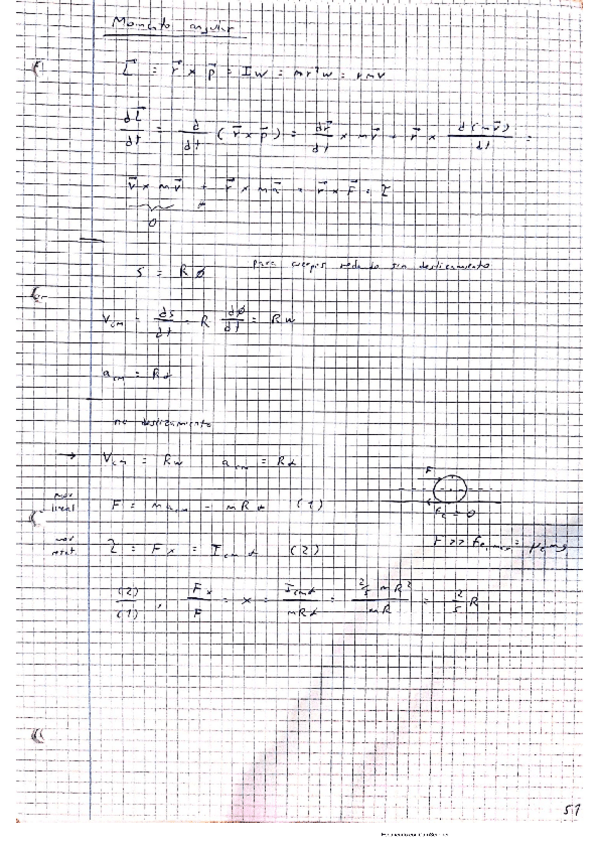 Momento angular
L⃗ = r⃗ × p⃗ = Iω = mr²ω = rmv
dL⃗/dt = d/dt (r⃗ × p⃗) = dr⃗/dt × mv⃗ + r⃗ × d(mv⃗)/dt =
v⃗ × mv⃗ + r⃗ × ma⃗ = r⃗ × F⃗ = τ
0
S = Rø para cuerpos sin deslizamiento
V_cm = ds/dt = R dø/dt = Rω
a_cm = Rα
no deslizamiento
→ V_cm = Rω a_cm = Rα
F
mov lineal F = m a_cm = mRα (1)
= 0
mov rotat τ = Fx = I_cm α (2)
(2)/(1), Fx/F = x = I_cm α/mRα = 2/5 mR²/mR = 2/5 R
51